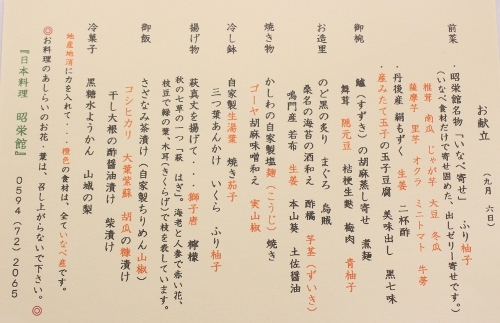 お献立　（九月　六日）
前菜　・昭栄館名物「いなべ寄せ」　ふり柚子
（いなべ食材だけで寄せ固めた、出しゼリー寄せです。）
椎茸　南瓜　じゃが芋　大豆　冬瓜
薩摩芋　里芋　オクラ　ミニトマト　牛蒡
・丹後産　絹もずく　生姜　二杯酢
・産みたて玉子の玉子豆腐　美味出し　黒七味
御椀　鱸（すずき）の胡麻蒸し寄せ　煮麺
舞茸　隠元豆　桔梗生麩　梅肉　青柚子
お造里　のど黒の炙り　まぐろ　烏賊
桑名の海苔の酒和え　酢橘　芋茎（ずいき）
鳴門産　若布　生姜　本山葵　土佐醤油
焼き物　かしわの自家製塩麹（こうじ）焼き
ゴーヤ胡麻味噌和え　実山椒
冷し鉢　自家製生湯葉　焼き茄子
三つ葉あんかけ　いくら　ふり柚子
揚げ物　萩真丈を揚げて・・・獅子唐　檸檬
秋の七草の一つ「萩　はぎ」。海老と人参で赤い花、
枝豆で緑の葉、木耳（きくらげ）で枝を表しています。
御飯　さざなみ茶漬け（自家製ちりめん山椒）
コシヒカリ　大葉紫蘇　胡瓜の糠漬け
干し大根の酢醤油漬け　柴漬け
冷菓子　黒糖水ようかん　山城の梨
地産地消に力を入れて・・・橙色の食材は、全ていなべ産です。
◎お料理のあしらいのお花、葉は、召し上がらないで下さい。◎
『日本料理　昭栄館』　0594（72）2065